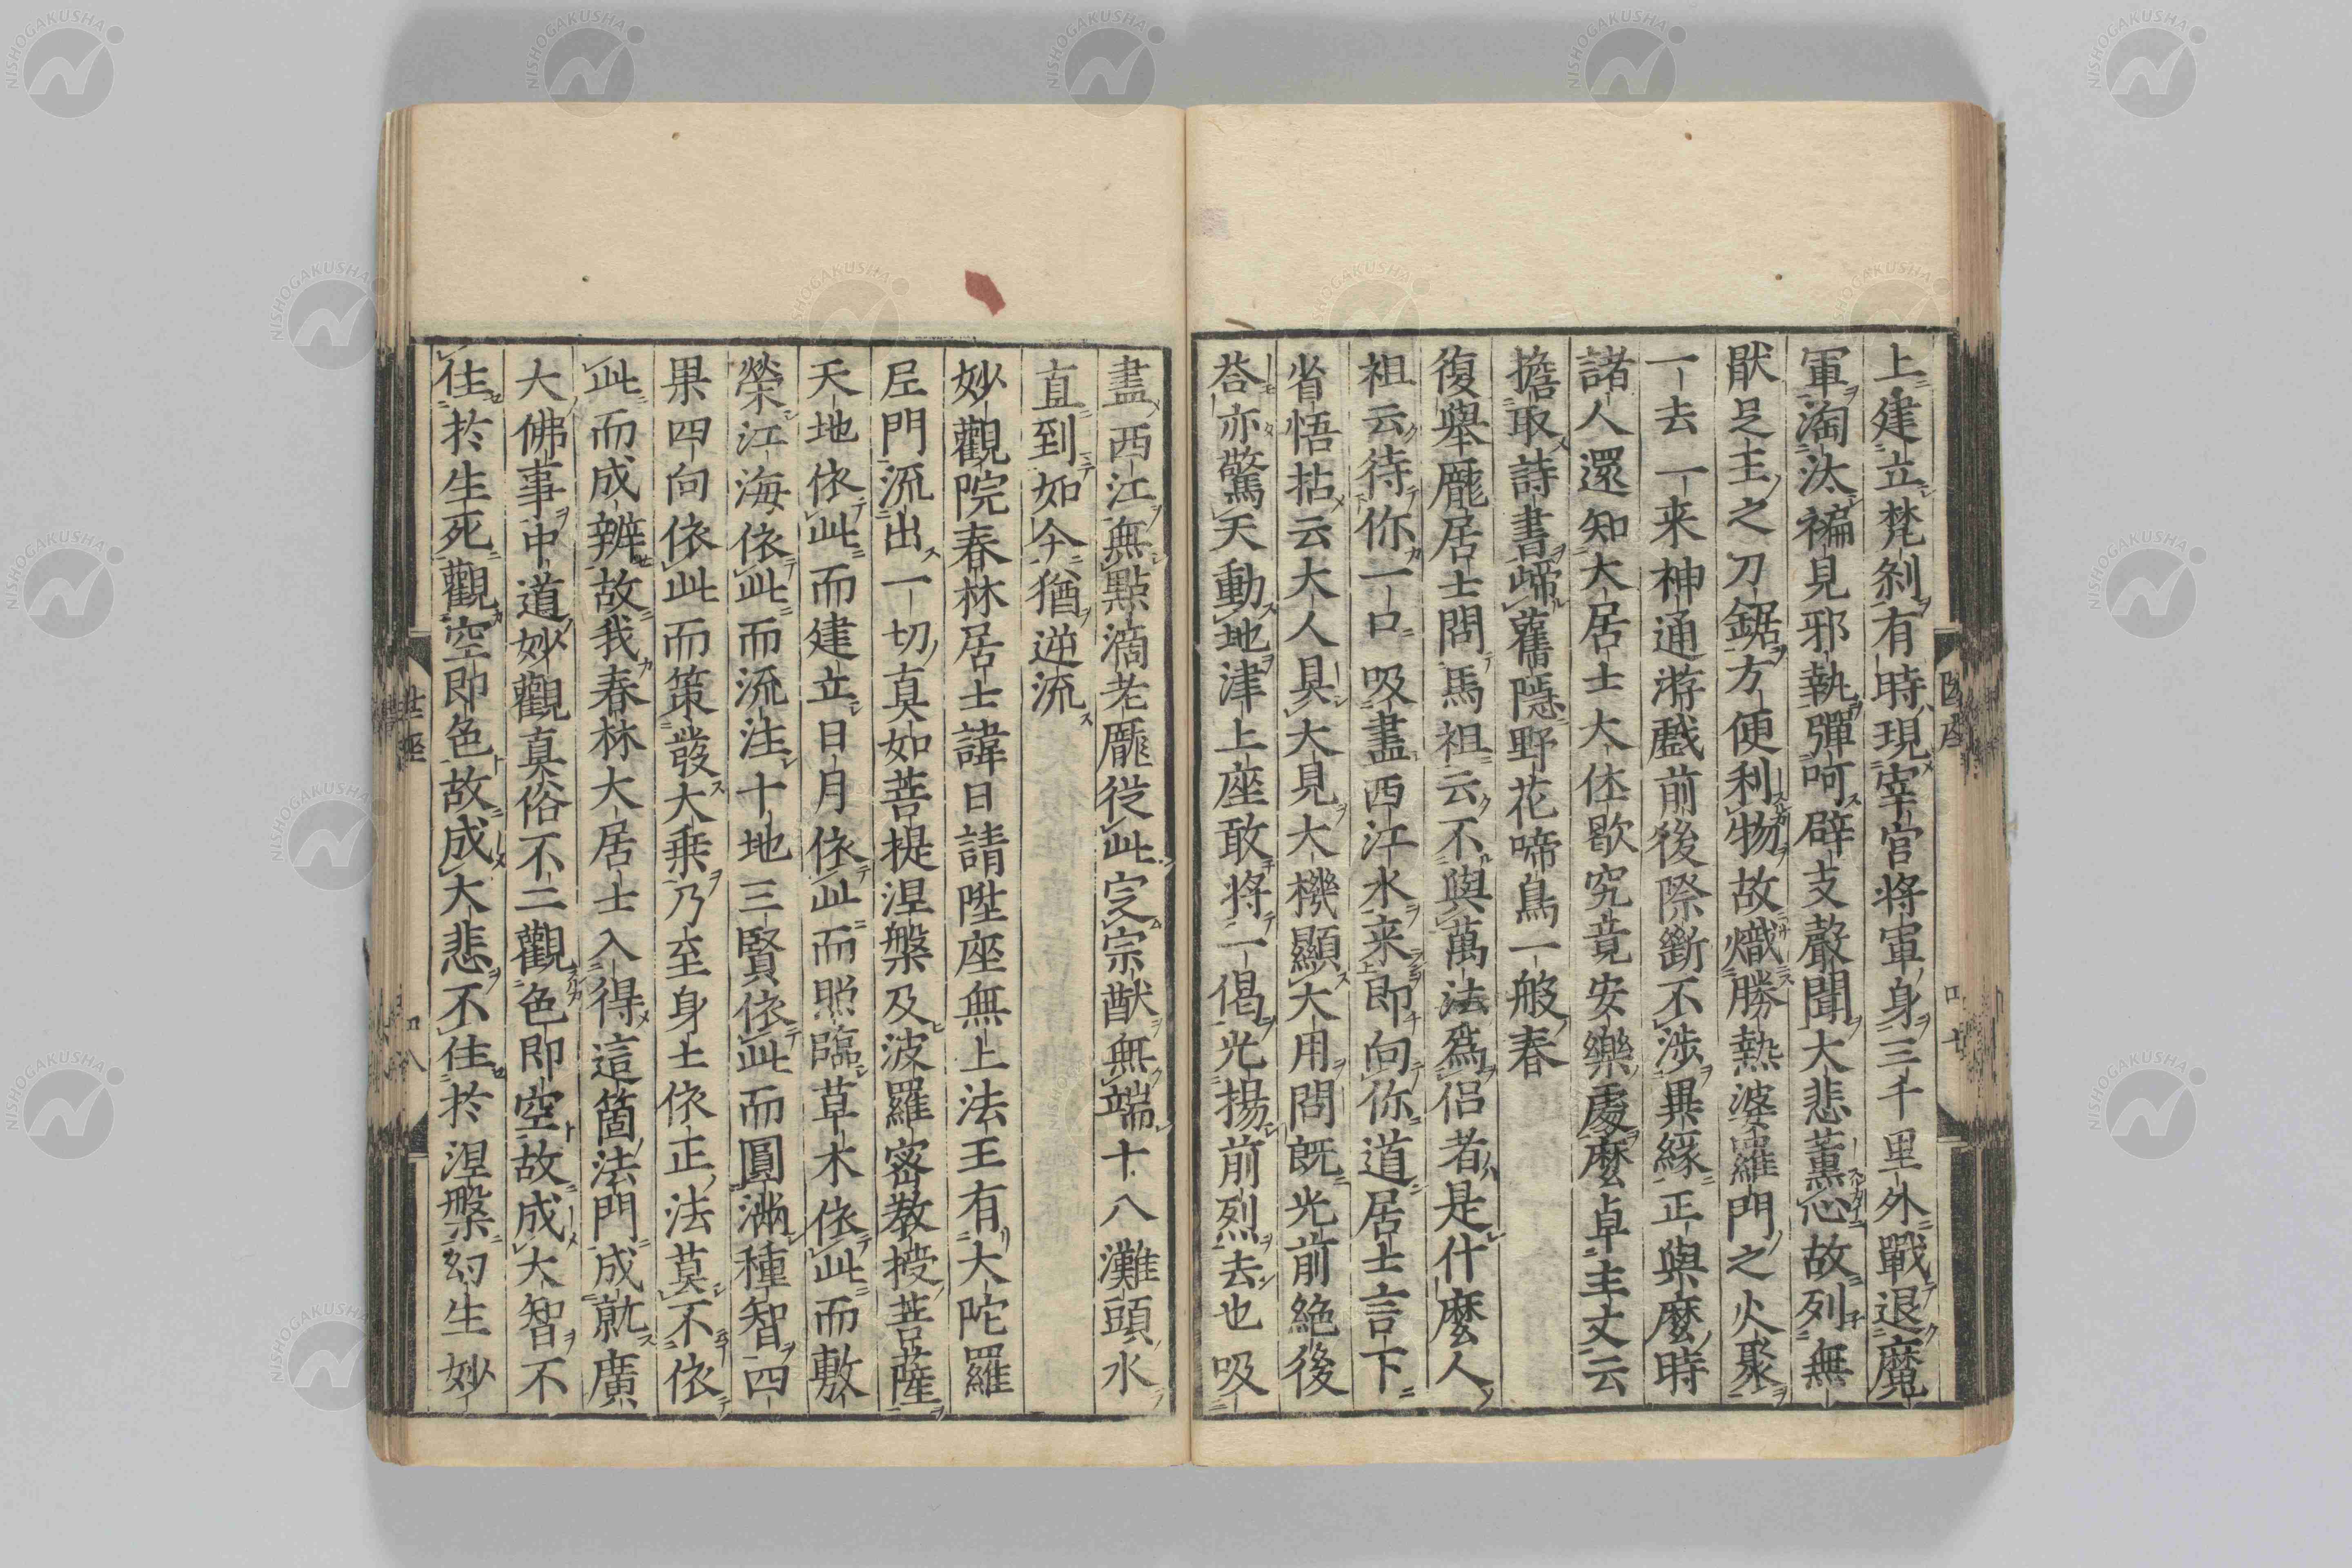 上建立梵刹有時現宰官将軍身三千里外戰退魔
軍淘汰褊見邪執彈呵辟支聲聞大悲薫心故列無
厭足王之刀鋸方便利物故熾勝熱婆羅門之火聚
一去一来神通游戲前後際斷不涉異緣正與麼時
諸人還知大居士大休歇究竟安樂處麼卓主丈云
擔取詩書啼舊隱野花啼鳥一般春
復舉龐居士問馬祖云不與萬法爲侶者是什麼人
祖云待你一口吸盡西江水来即向你道居士言下
省悟拈云大人具大見大機顯大用問既光前絶後
荅亦驚天動地津上座敢将一偈光揚前烈去也吸
盡西江無點滴老龐従此定宗猷無端十八灘頭水
直到如今猶逆流
妙觀院春林居士諱日請陞座無上法王有大陀羅
尼門流出一切真如菩提涅槃及波羅密教授菩薩
天地依此而建立日月依此而照臨草木依此而敷
榮江海依此而流注十地三賢依此而圓滿種智四
果四向依此而策發大乗乃至身土依正法莫不依
此而成辨故我春林大居士入得這箇法門成就廣
大佛事中道妙觀真俗不二觀色即空故成大智不
住於生死觀空即色故成大悲不住於涅槃幻生妙